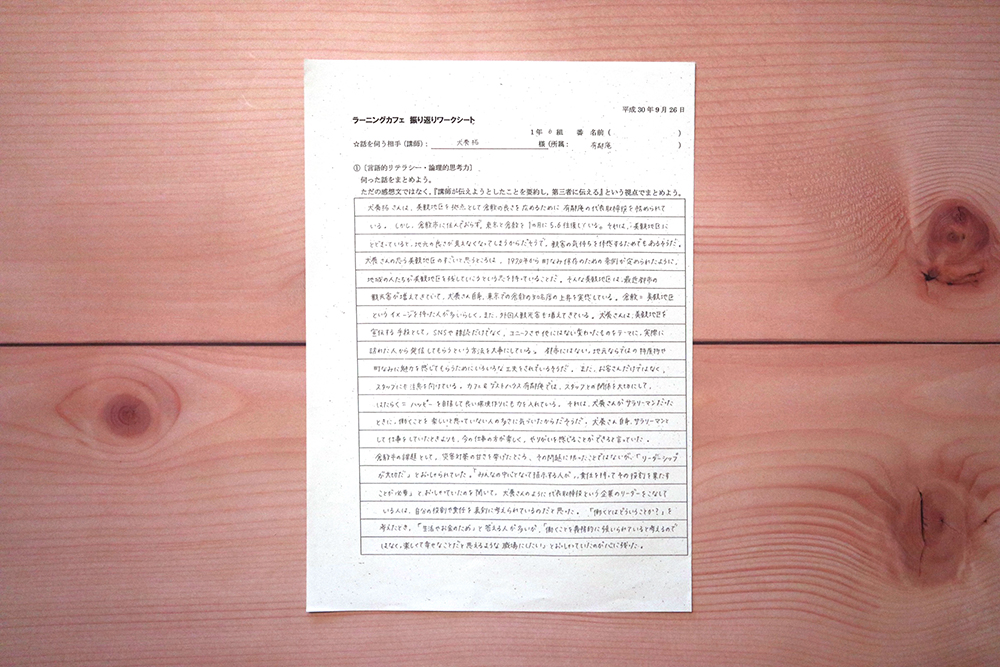 平成30年9月26日
ラーニングカフェ 振り返りワークシート
1年 6組 番 名前( )
☆話を伺う相手(講師): 犬養拓 様(所属: 有鄰庵 )
①[言語的リテラシー・論理的思考力]
伺った話をまとめよう。
ただの感想文ではなく、『講師が伝えようとしたことを要約し、第三者に伝える』という視点でまとめよう。
犬養拓さんは、美観地区を拠点として倉敷の良さを広めるために有鄰庵の代表取締役を務められて
いる。しかし、倉敷市に住んでおらず、東京と倉敷を1か月に5,6往復している。それは、美観地区に
とどまっていると、地元の良さが見えなくなってしまうからだそうで、観客の気持ちを持続するためでもあるそうだ。
犬養さんの思う美観地区のすごいと思うところは、1970年から町なみ保存のための条例が定められたように、
地域の人たちが美観地区を残していこうという志を持っていることだ。そんな美観地区は、最近都市の
観光客が増えてきていて、犬養さん自身、東京での倉敷の知名度の上昇を実感している。倉敷=美観地区
というイメージを持った人が多いらしく、また、外国人観光客も増えてきている。犬養さんは、美観地区を
宣伝する手段として、SNSや雑誌だけでなく、ユニークさや他にはない変わったものをテーマに、実際に
訪れた人から発信してもらうという方法を大事にしている。都市にはない、地元ならではの特産物や
町なみに魅力を感じてもらうためにいろいろな工夫をされているそうだ。また、お客さんだけではなく、
スタッフにも注意を向けている。カフェ&ゲストハウス有鄰庵では、スタッフとの関係を大切にして、
はたらく=ハッピーを目指して良い環境作りにも力を入れている。それは、犬養さんがサラリーマンだった
ときに、働くことを楽しいと思っていない人の多さに気づいたからだそうだ。犬養さん自身、サラリーマンと
して仕事をしていたときよりも、今の仕事の方が楽しく、やりがいを感じることができると言っていた。
倉敷市の課題として、災害対策の甘さを挙げたところ、その問題に限ったことではないが、「リーダーシップ
が大切だ」とおっしゃられていた。「みんなの中に立って指示する人が、責任を持ってその役割を果たす
ことが必要」とおっしゃていたのを聞いて、犬養さんのように代表取締役という企業のリーダーをこなして
いる人は、自分の役割や責任を真剣に考えられているのだと思った。「働くとはどういうことか?」を
考えたとき、「生活やお金のため」と答える人が多いが、「働くことを義務的に強いられていると考えるので
はなく、楽しくて幸せなことだと思えるような職場にしたい」とおっしゃていたのが心に残った。